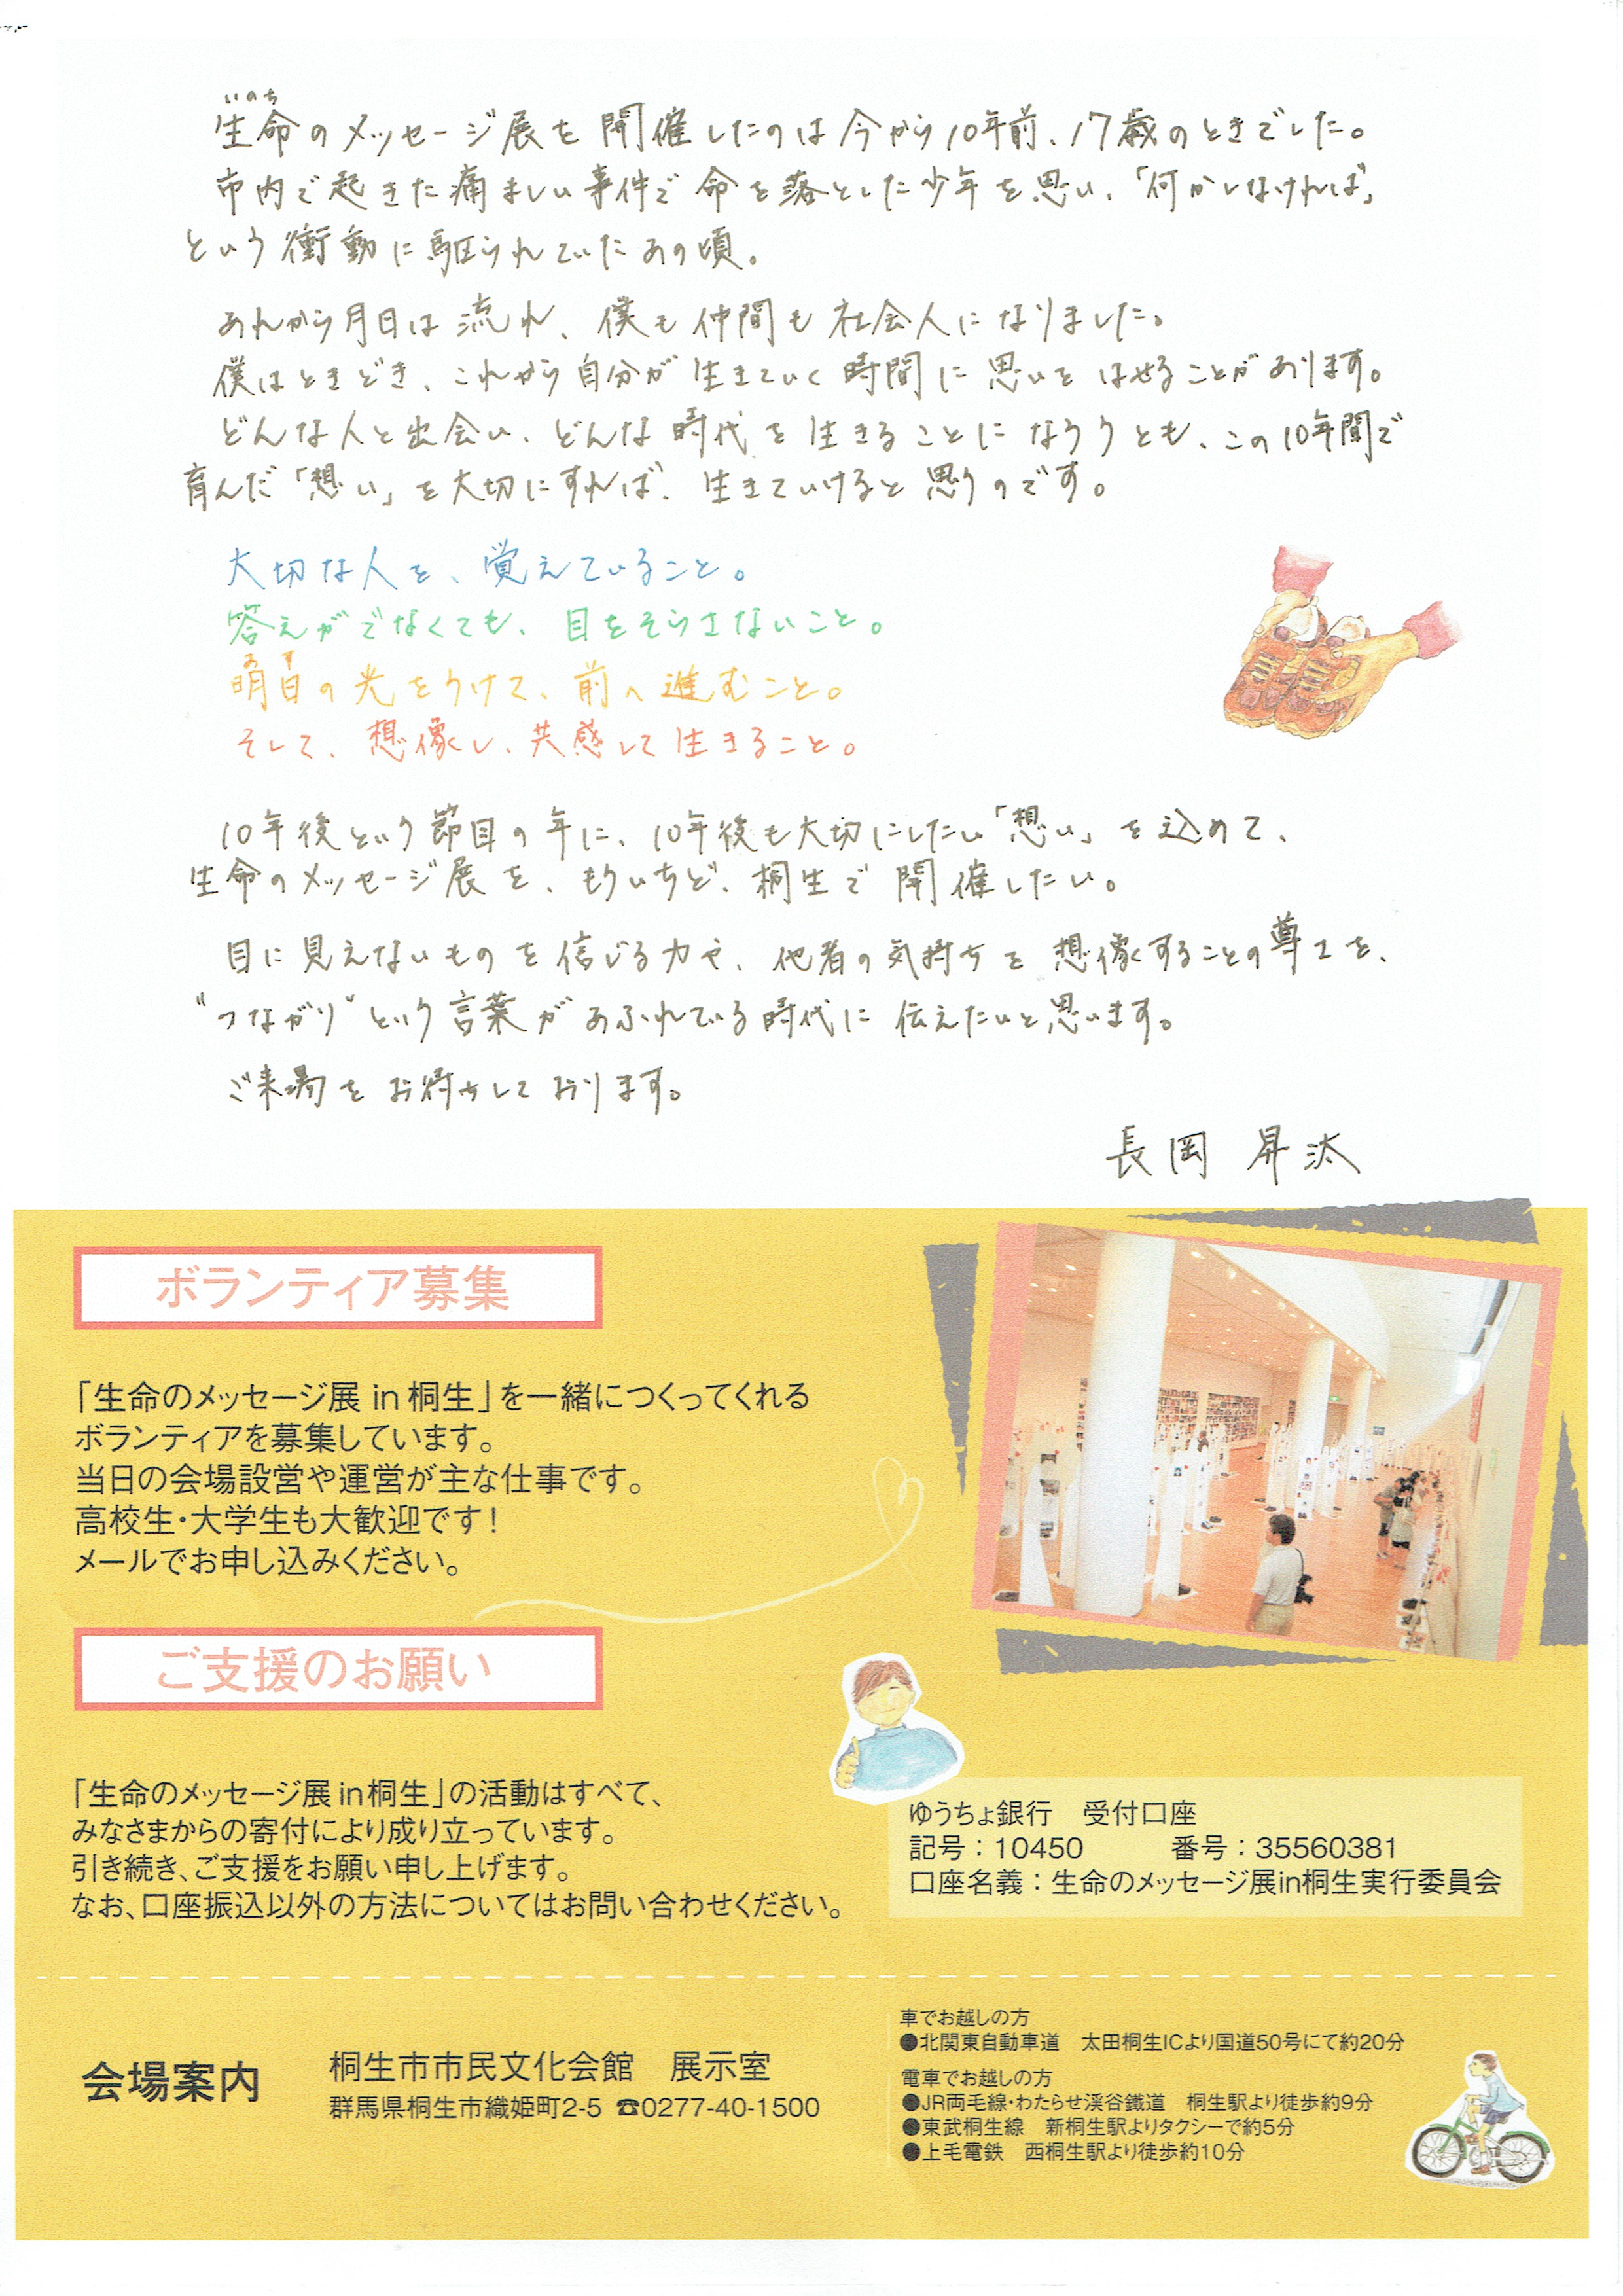 いのち
生命のメッセージ展を開催したのは今から10年前、17歳のときでした。
市内で起きた痛ましい事件で命を落とした少年を思い、「何かしなければ」
という衝動に駆られていたあの頃。
あれから月日は流れ、僕も仲間も社会人になりました。
僕はときどき、これから自分が生きていく時間に思いをはせることがあります。
どんな人と出会い、どんな時代を生きることになろうとも、この10年間で
育んだ「想い」を大切にすれば、生きていけると思うのです。
大切な人を、覚えていること。
答えがでなくても、目をそらさないこと。
あす
明日の光をうけて、前へ進むこと。
そして、想像し、共感して生きること。
10年後という節目の年に、10年後も大切にしたい「想い」を込めて、
生命のメッセージ展を、もういちど、桐生で開催したい。
目に見えないものを信じる力や、他者の気持ちを想像することの尊さを、
"つながり"という言葉があふれている時代に伝えたいと思います。
ご来場をお待ちしております。
長岡 昇汰
ボランティア募集
「生命のメッセージ展 in 桐生」を一緒につくってくれる
ボランティアを募集しています。
当日の会場設営や運営が主な仕事です。
高校生・大学生も大歓迎です！
メールでお申し込みください。
ご支援のお願い
「生命のメッセージ展in桐生」の活動はすべて、
みなさまからの寄付により成り立っています。
引き続き、ご支援をお願い申し上げます。
なお、口座振込以外の方法についてはお問い合わせください。
ゆうちょ銀行　受付口座
記号：10450　　番号：35560381
口座名義：生命のメッセージ展in桐生実行委員会
会場案内
桐生市市民文化会館　展示室
群馬県桐生市織姫町2-5 ☎0277-40-1500
車でお越しの方
●北関東自動車道　太田桐生ICより国道50号にて約20分
電車でお越しの方
●JR両毛線・わたらせ渓谷鐵道　桐生駅より徒歩約9分
●東武桐生線　新桐生駅よりタクシーで約5分
●上毛電鉄　西桐生駅より徒歩約10分